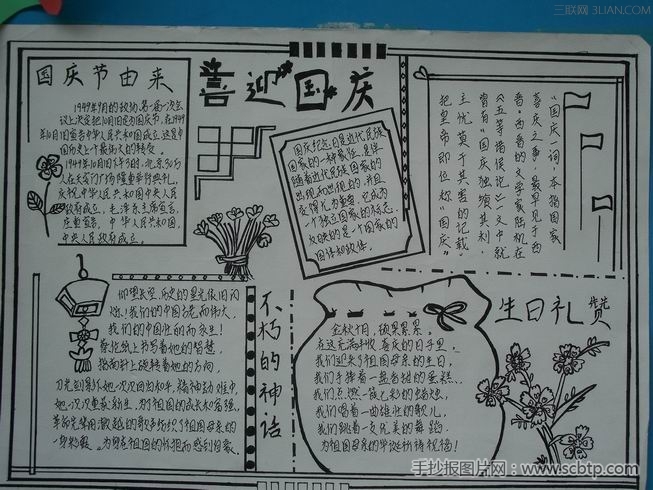 三联网 3LIAN.COM
喜迎国庆
国庆节由来
1949年9月的政协第一次会
议上决定把10月1日定为国庆节,在1949
年10月1日宣告中华人民共和国成立,这是中
国历史上一个最伟大的转变。
1949年10月1日下午3时,北京30万
人在天安门广场隆重举行典礼,
庆祝中华人民共和国中央人民
政府成立。毛泽东主席宣告,
庄重宣告,中华人民共和国,
中央人民政府成立。
国庆纪念日是近代民族
国家的一种特征,是伴
随着近代民族国家的
出现而出现的,并且
变得尤为重要。它成为
一个独立国家的标志,
反映的是一个国家的
国体和政体。
“国庆”一词,本指国家
喜庆之事,最早见于西
晋。西晋的文学家陆机在
《五等诸侯论》一文中就
曾有“国庆独飨其利,
主忧莫于其害”的记载、
把皇帝即位称“国庆”
不朽的神话
仰望长空,历史的星光依旧闪
烁、我们的中国古老而伟大,
我们的中国壮的而永生!
蔡伦纸上书写着她的智慧,
指南针上旋转着她的方向,
为了祖国的成长和富强,
为拥有祖国的怀抱而感到自豪、
生日礼赞
金秋十月,硕果累累。
在这充满丰收喜庆的日子里,
我们迎来了祖国母亲的生日,
我们手捧着一盘香甜的蛋糕…
我们点燃一成乙彩的蜡烛,
我们唱着一曲雄壮的歌儿,
我们跳着一支优美的舞蹈。
为祖国母亲的华诞祈祷祝福!
手抄报图片网-www.scbtp.com